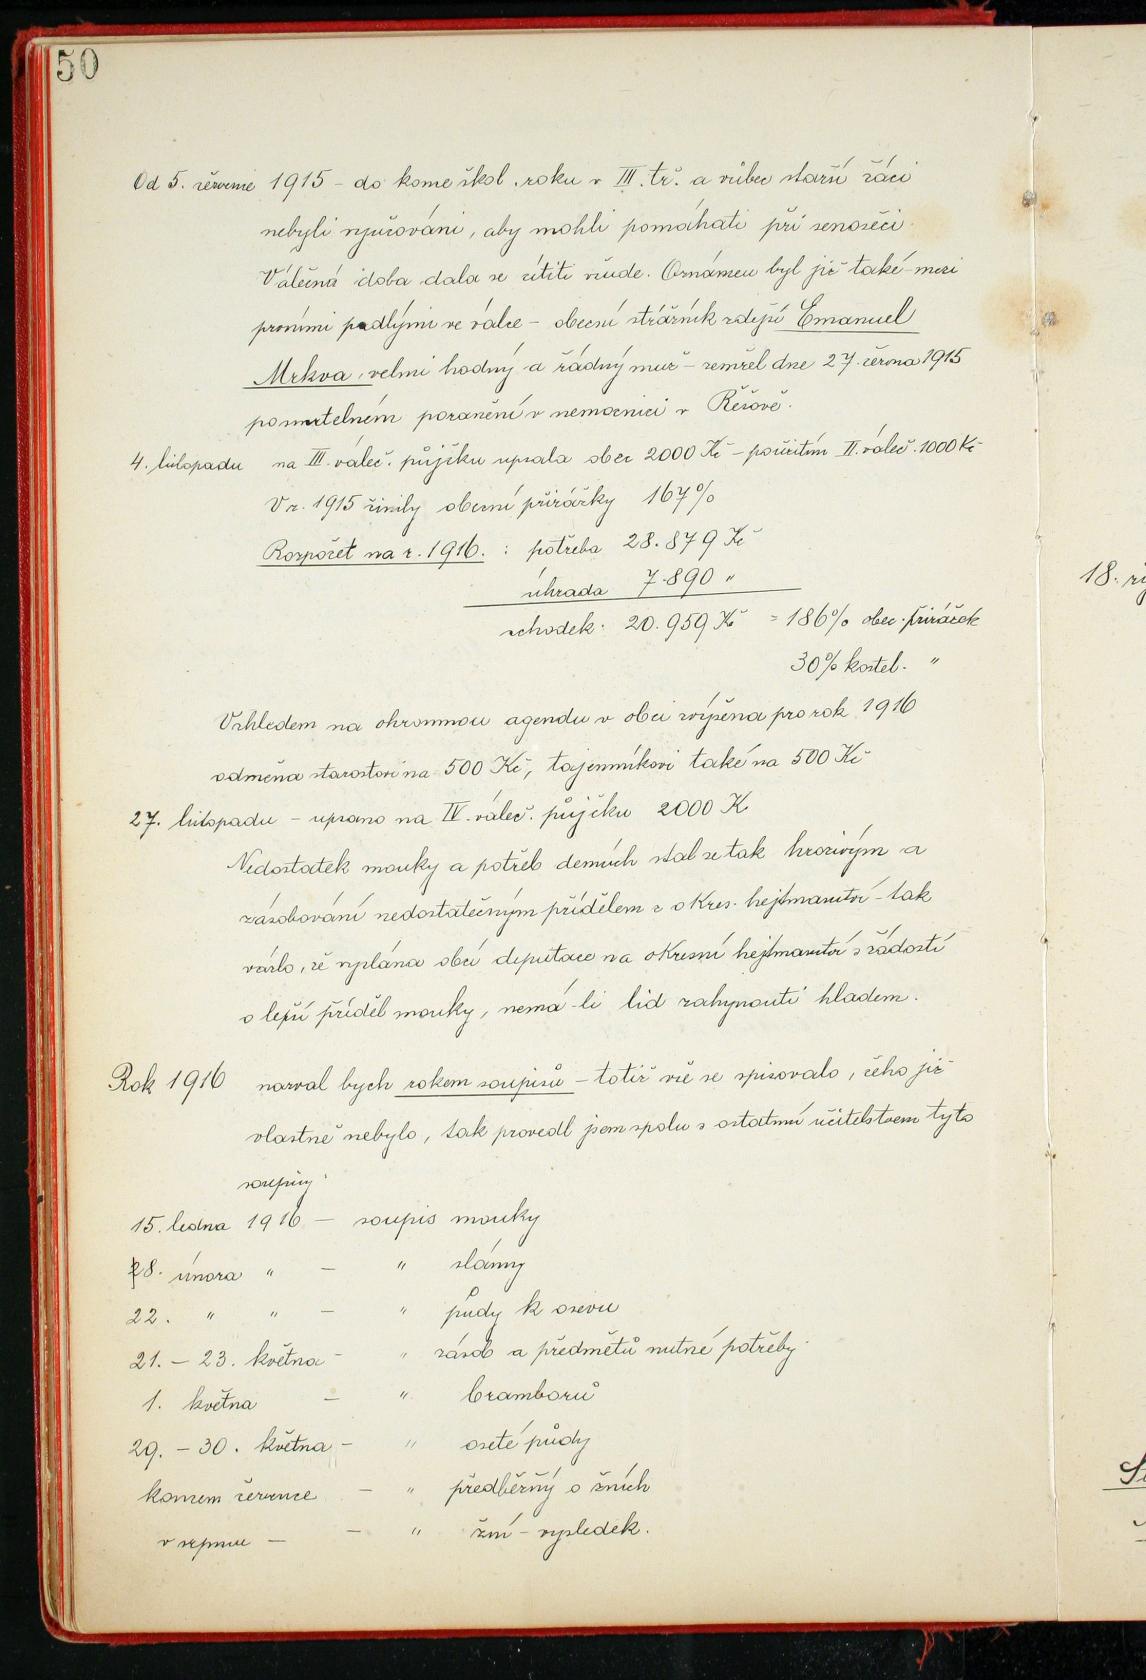 50
Od 5. července 1915 – do konce škol. roku v III. tř. a vůbec starší žáci
nebyli vyučováni, aby mohli pomáhati při senoseči.
Válečná doba dala se cítiti všude. Oznámen byl již také mezi
prvními padlými ve válce – obecní strážník zdejší Emanuel
Mrkva, velmi hodný a řádný muž – zemřel dne 27. června 1915
po smrtelném poranění v nemocnici v Řešově.
4. listopadu na III. váleč. půjčku upsala obec 2000 Kč – použitím II. váleč. 1000 Kč
V r. 1915 činily obecní přirážky 167%
Rozpočet na r. 1916. : potřeba 28.879 Kč
úhrada 7.890 "
schodek. 20.959 Kč = 186% obec. přirážek
30% kostel. "
Vzhledem na ohromnou agendu v obci zvýšena pro rok 1916
odměna starostovi na 500 Kč, tajemníkovi také na 500 Kč
27. listopadu – upsáno na IV. váleč. půjčku 2000 K
Nedostatek mouky a potřeb denních stal se tak hrozivým a
zásobování nedostatečným přídělem z okres. hejtmanství – tak
vázlo, že vyslána obcí deputace na okresní hejtmanství s žádostí
o lepší příděl mouky, nemá-li lid zahynouti hladem.
Rok 1916 nazval bych rokem soupisů – totiž vše se spisovalo, čeho již
vlastně nebylo, tak provedl jsem spolu s ostatním učitelstvem tyto
soupisy.
15. ledna 1916 – soupis mouky
28. února " – " slámy
22. " " – " půdy k osevu
21. – 23. května – " zásob a předmětů nutné potřeby
1. května – " bramborů
29. – 30. května – " oseté půdy
koncem července – " předběžný o žních
v srpnu – – " žní – vysledek.
18. ří